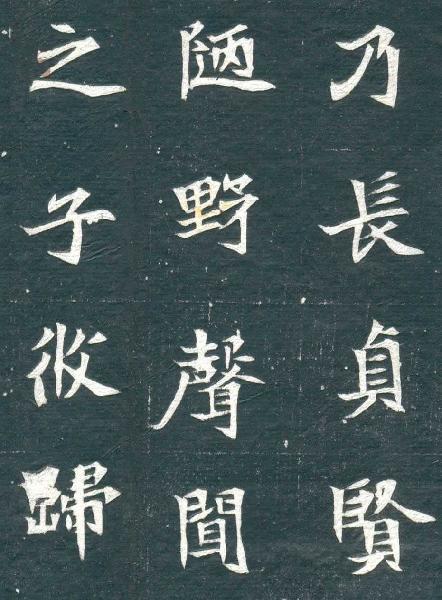 乃長貞賢
陋野聲聞
之子攸歸